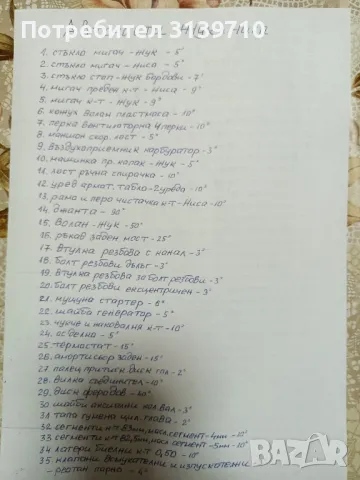 Потребител 3139710
1. стъкло мигач - Жук - 5°
2. стъкло мигач - Ниса - 5°
3. стъкло стоп - Жук бордови - 7°
4. мигач преден к-т - Ниса - 9°
5. мигач к-т - Жук - 9°
6. кожух волан пластмаса - 10°
7. перка вентилаторна 4 перки - 10°
8. маншон скор. лост - 5°
9. въздухоприемник карбуратор - 3°
10. машинка пр. капак - Жук - 5°
11. лост ръчна спирачка - 10°
12. уред армат. табло - 2 уреда - 10°
13. рамо и перо чистачка к-т - Ниса - 10°
14. джанта - 30°
15. Волан - Жук - 50°
16. ръкав заден мост - 25°
17. втулка резбова с канал - 3°
18. болт резбови дълъг - 3°
19. втулка резбова за болт резбови - 3°
20. болт резбови ексцентричен - 3°
21. куцуна стартер - 6°
22. шайба генератор - 5°
23. чукче и наковалня к-т - 10°
24. асделка - 5°
25. термостат - 15°
26. амортисьор заден - 15°
27. палец притиск. диск гпл - 2°
28. вилка съединител - 10°
29. диск феродов - 40°
30. шайби аксиални кол. вал - 3°
31. тапа гумена цил. глава - 2°
32. сегменти к-т 83мм, масл. сегмент - 4мм - 10°
33. сегменти к-т 82,5мм, масл. сегмент - 5мм - 10°
34. лагери биелни к-т 0,50 - 10°
35. клапани всмукателни и изпускателни
BAZAR